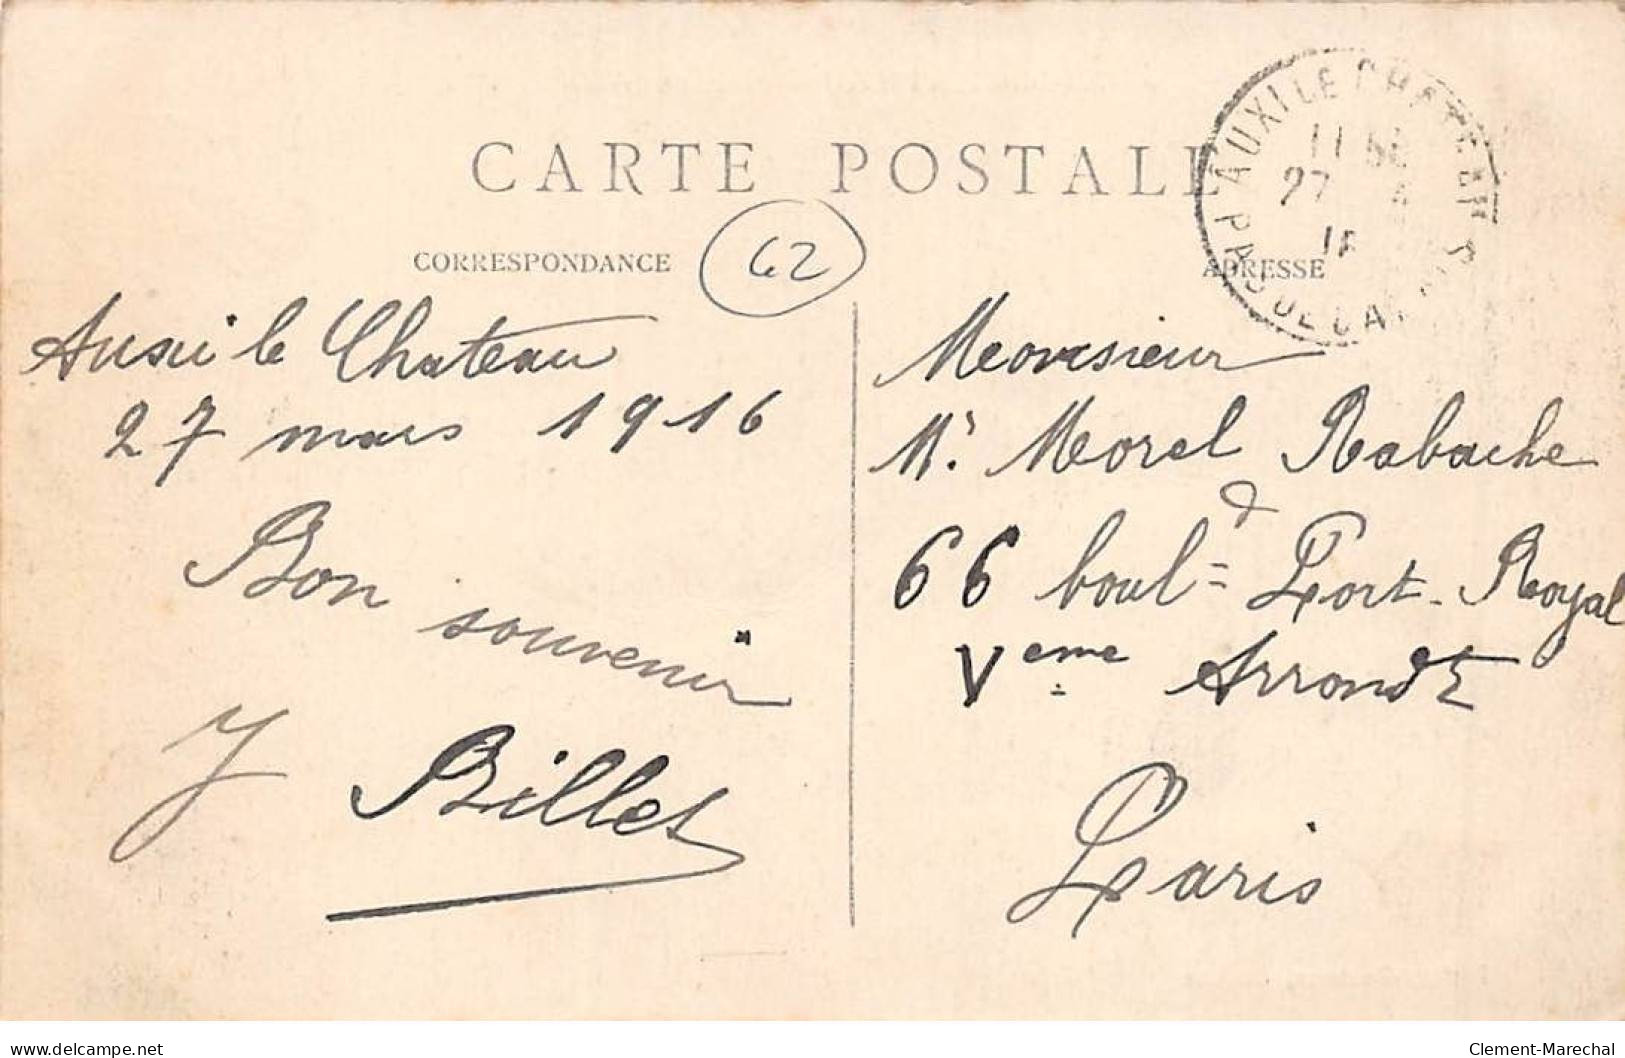 CARTE POSTALE
CORRESPONDANCE
62
ADRESSE
AUXI LE CHATEAU
PAS DE CALAIS
27
Auxi le Chateau
27 mars 1916
Bon souvenir
J Billet
Monsieur
Mr Morel Rabache
66 boul=d Port-Royal
Veme Arrondt
Paris
delcampe.net
Clement-Marechal